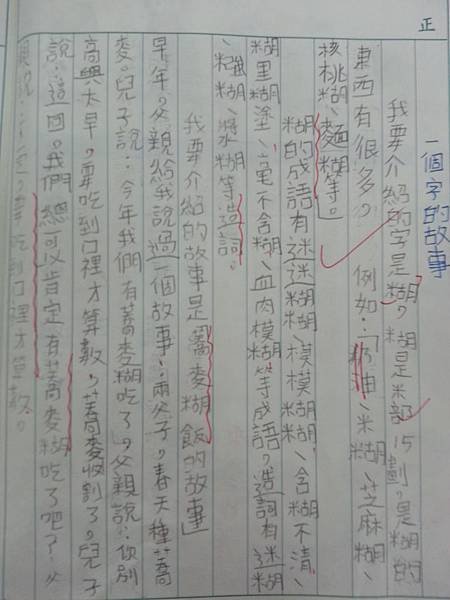 正
一個字的故事
我要介紹的字是糊，糊是米部15劃，是糊的
東西有很多。例如：奶油、米糊、芝麻糊、
核桃糊、麵糊等。
糊的成語有迷迷糊糊、模模糊糊、含糊不清、
糊里糊塗、毫不含糊、血肉模糊等成語，造詞有迷糊
、糨糊、漿糊等造詞。
我要介紹的故事是「蕎麥糊飯的故事」
早年，父親給我說過一個故事：兩父子，春天種蕎
麥。兒子說：今年我們有蕎麥糊吃了。」父親說：你別
高興太早，要吃到口裡才算數，蕎麥收割了，兒子
說：這回，我們總可以肯定有蕎麥糊吃了吧？父
親說：要吃到口裡才算數。